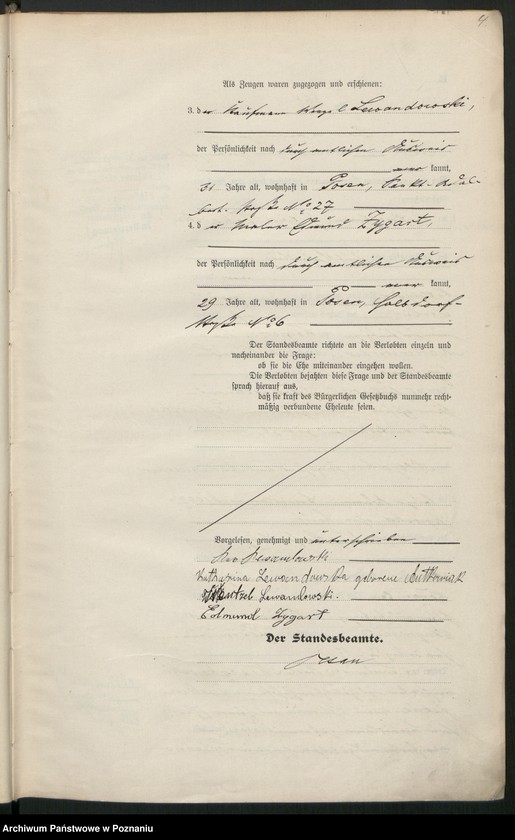 4
Als Zeugen waren zugezogen und erschienen:
3. der Kaufmann Lewandowski,
der Persönlichkeit nach durch amtlichen Ausweis
kannt,
31 Jahre alt, wohnhaft in Posen, Sankt-Adal-
bert-Straße No 27
4. der Maler Edmund Zygart,
der Persönlichkeit nach durch amtlichen Ausweis
kannt,
29 Jahre alt, wohnhaft in Posen, Halbdorf-
straße No 6
Der Standesbeamte richtete an die Verlobten einzeln und
nacheinander die Frage:
ob sie die Ehe miteinander eingehen wollen.
Die Verlobten bejahten diese Frage und der Standesbeamte
sprach hierauf aus,
daß sie kraft des Bürgerlichen Gesetzbuchs nunmehr recht-
mäßig verbundene Eheleute seien.
Vorgelesen, genehmigt und unterschrieben
Lewandowski
Katharzina Lewandowska geborene
Lewandowski.
Edmund Zygart
Der Standesbeamte.
Archiwum Państwowe w Poznaniu